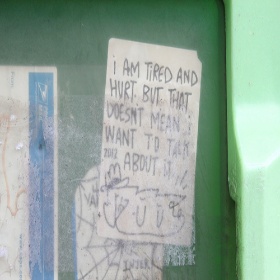 i AM TIRED AND
HURT. BUT THAT
DOESNT MEAN i
WANT TO TALK
2012 ABOUT IT !